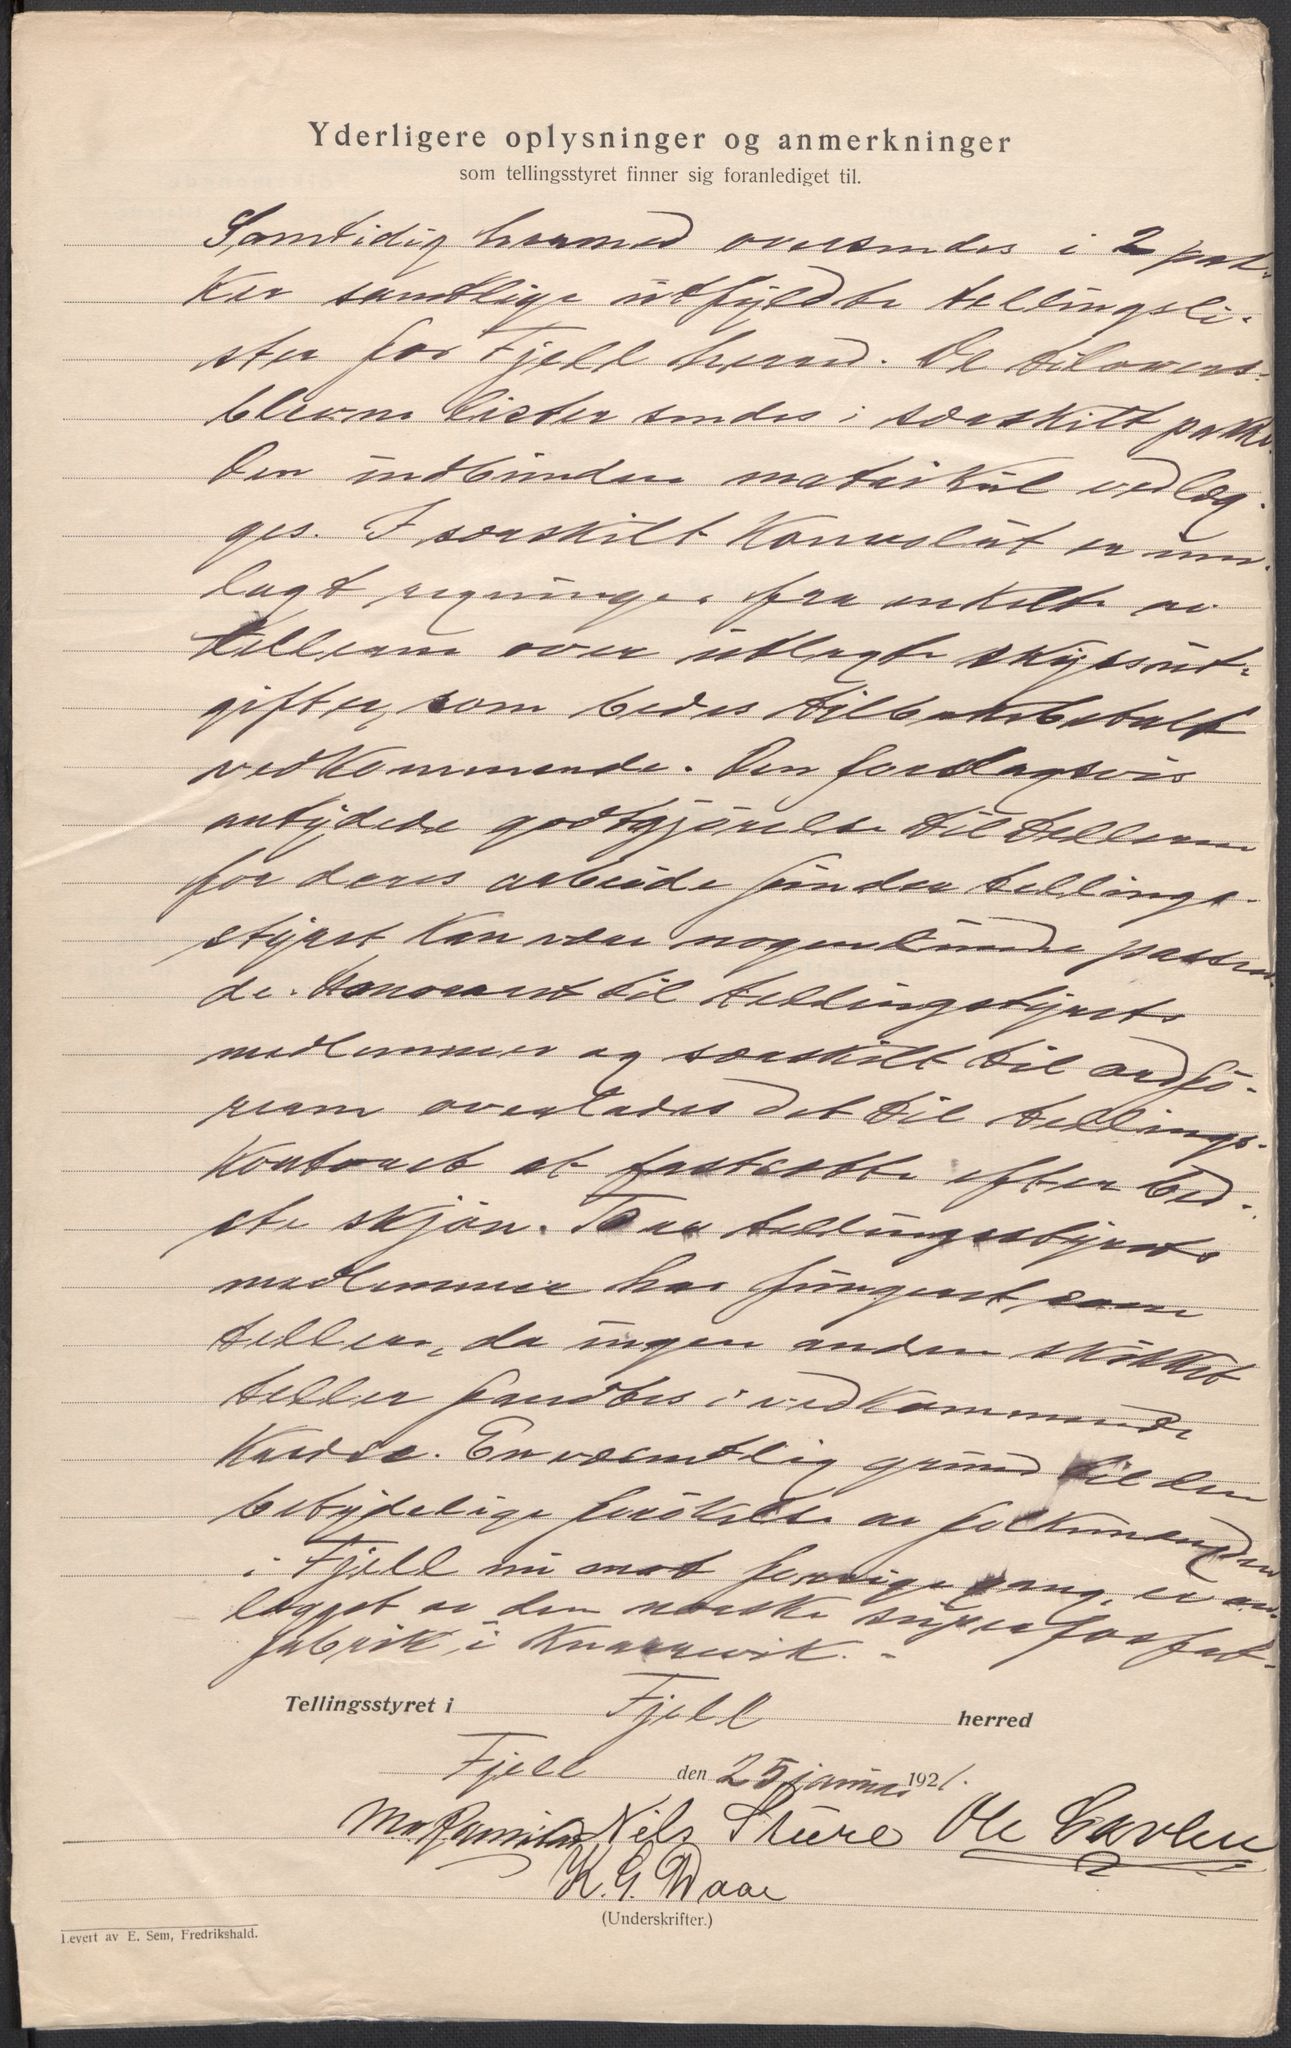 Yderligere oplysninger og anmerkninger
som tellingsstyret finner sig foranlediget til.
Samtidig hermed oversendes i 2 pak-
ker samtlige utfyldte tellingsli-
ster for Fjell herred. De tilovers-
blevne lister sendes i særskilt pakke.
Den indbundne matrikul vedlæg-
ges. I særskilt konvolut er inn-
lagt regninger fra enkelte av
tellerne over utlagte skyssut-
gifter, som bedes tilbakebetalt
vedkommende. Den forslagsvis
antydede godtgjörelse til tellerne
for deres arbeide finder tellings-
styret kan være nogenlunde passen-
de. Honorart til tellingsstyrets
medlemmer og særskilt til ordfö-
reren overlades det til tellings-
kontoret at fastsætte efter bed-
ste skjön. To av tellingsstyrets
medlemmer har fungert som
tellere, da ingen anden skikket
teller fandtes i vedkommende
kreds. En væsentlig grund til den
betydelige forökelse av folkemengden
i Fjell nu mot forrige gang, er an-
lægget av den norske superfosfat-
fabrik i Knarrevik. -
Tellingsstyret i Fjell herred
Fjell den 25 januar 1921.
Nils Sture Ole
K. G. Waae
(Underskrifter.)
Levert av E. Sem, Fredrikshald.